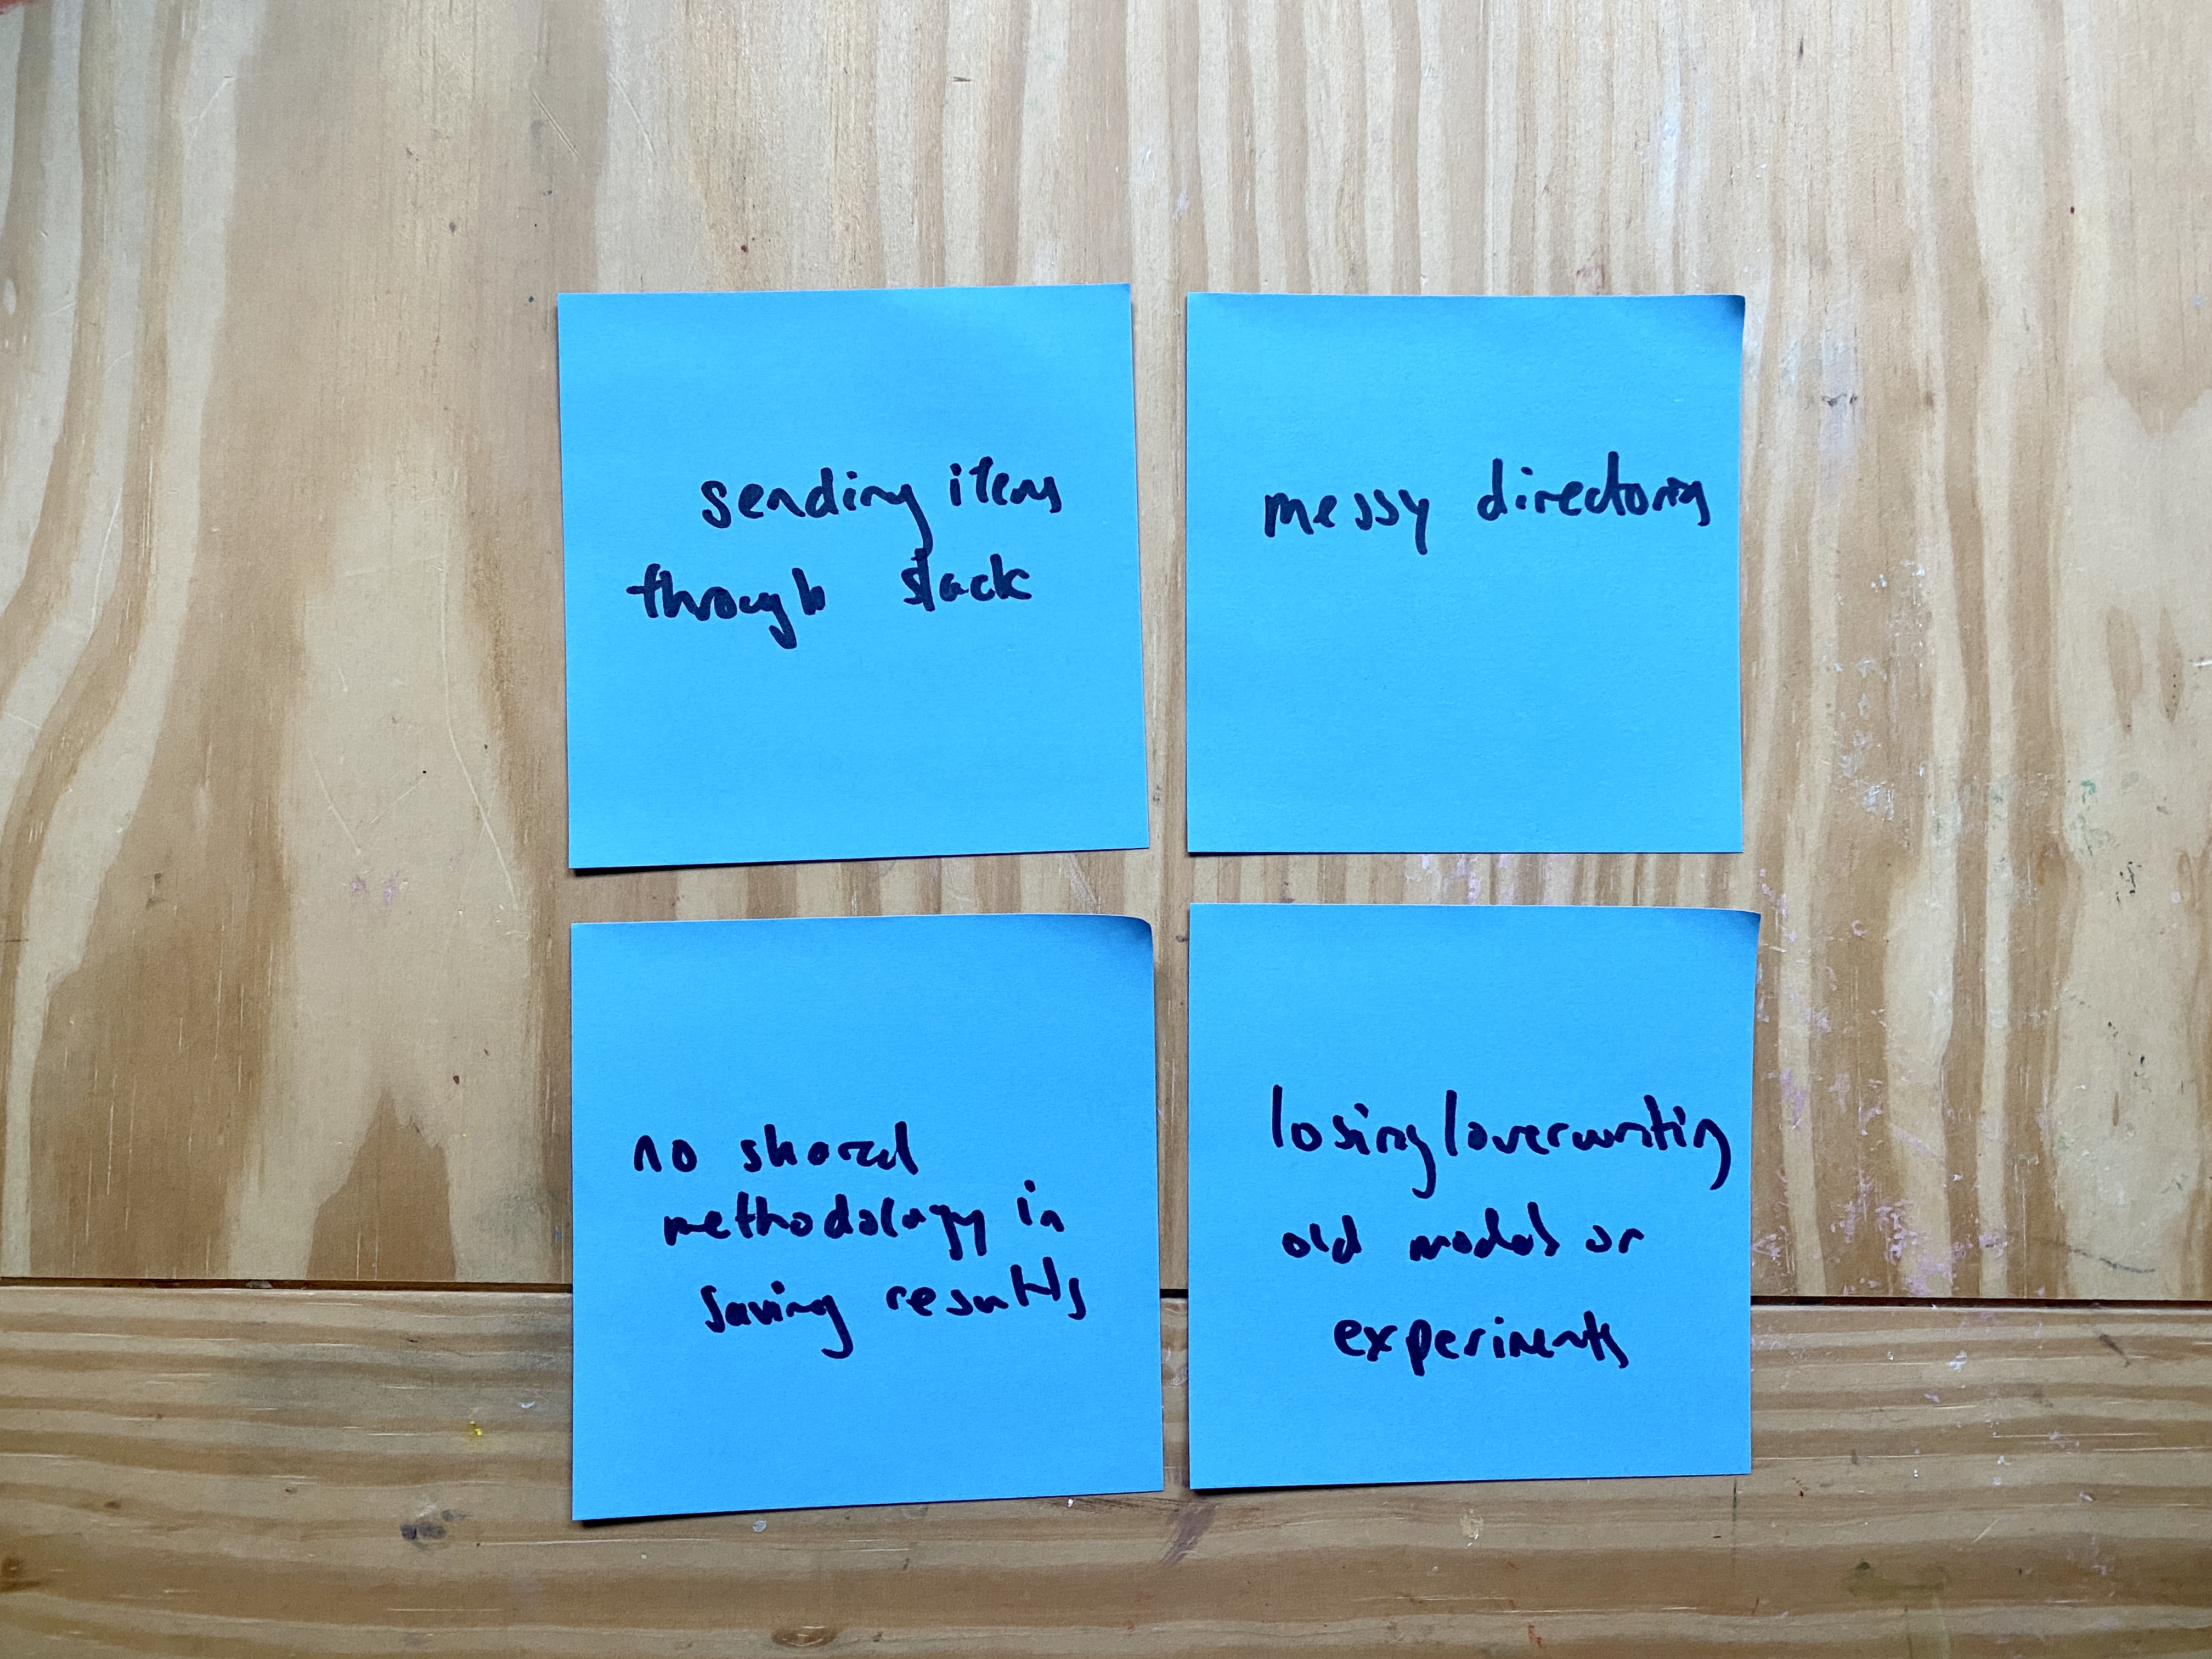 sending items
through slack
messy directories
no shared
methodology in
saving results
losing/overwriting
old models or
experiments